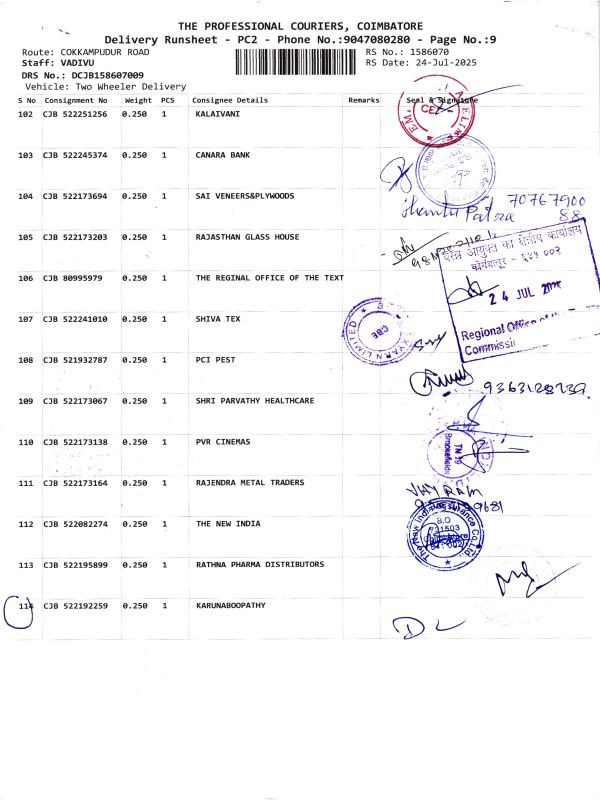 THE PROFESSIONAL COURIERS, COIMBATORE
Delivery Runsheet - PC2 - Phone No.:9047080280 - Page No.:9
Route: COKKAMPUDUR ROAD
RS No.: 1586070
Staff: VADIVU
RS Date: 24-Jul-2025
DRS No.: DCJB158607009
Vehicle: Two Wheeler Delivery
S No Consignment No Weight PCS Consignee Details Remarks Seal & Signature
102 CJB 522251256 0.250 1 KALAIVANI
103 CJB 522245374 0.250 1 CANARA BANK
104 CJB 522173694 0.250 1 SAI VENEERS&PLYWOODS
7076790088
105 CJB 522173203 0.250 1 RAJASTHAN GLASS HOUSE
वस्त्र आयुक्त का क्षेत्रीय कार्यालय
कोयम्बत्तूर - ६४१ ००२
106 CJB 80995979 0.250 1 THE REGINAL OFFICE OF THE TEXT
24 JUL 2025
107 CJB 522241010 0.250 1 SHIVA TEX
YARN LIMITED
CBE
Regional Office of
108 CJB 521932787 0.250 1 PCI PEST
109 CJB 522173067 0.250 1 SHRI PARVATHY HEALTHCARE
110 CJB 522173138 0.250 1 PVR CINEMAS
TN 19
Brookefields
111 CJB 522173164 0.250 1 RAJENDRA METAL TRADERS
112 CJB 522082274 0.250 1 THE NEW INDIA
The New India Assurance Co.Ltd
113 CJB 522195899 0.250 1 RATHNA PHARMA DISTRIBUTORS
114 CJB 522192259 0.250 1 KARUNABOOPATHY